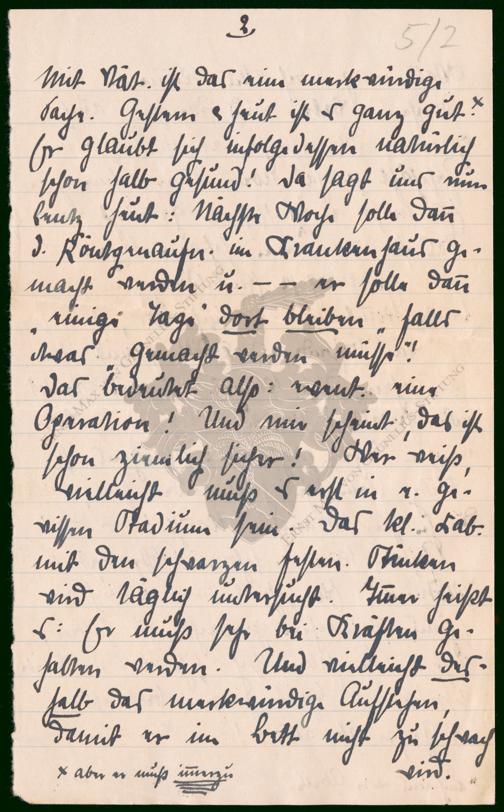 2
5/2
Mit Vät. ist das eine merkwürdige
Sache. Gestern & heut ist es ganz gut! x
Er glaubt sich infolgedessen natürlich
schon halb gesund! Da sagt uns nun
heut: Nächste Woche solle dann
d. Röntgenaufn. im Krankenhaus ge-
macht werden u. – – er solle dann
"einige Tage dort bleiben", falls
etwas "gemacht werden müsse"!
Das bedeutet also: event. eine
Operation! Und mir scheint, das ist
schon ziemlich sicher! Wer weiß,
vielleicht muß es erst in e. ge-
wissen Stadium sein. Das kl. Lab.
mit den schwarzen
wird täglich untersucht. Immer heißt
es: Er muß sehr bei Kräften ge-
halten werden. Und vielleicht des-
halb das merkwürdige Aufstehen,
damit er im Bett nicht zu schwach
wird.
x aber er muß immerzu